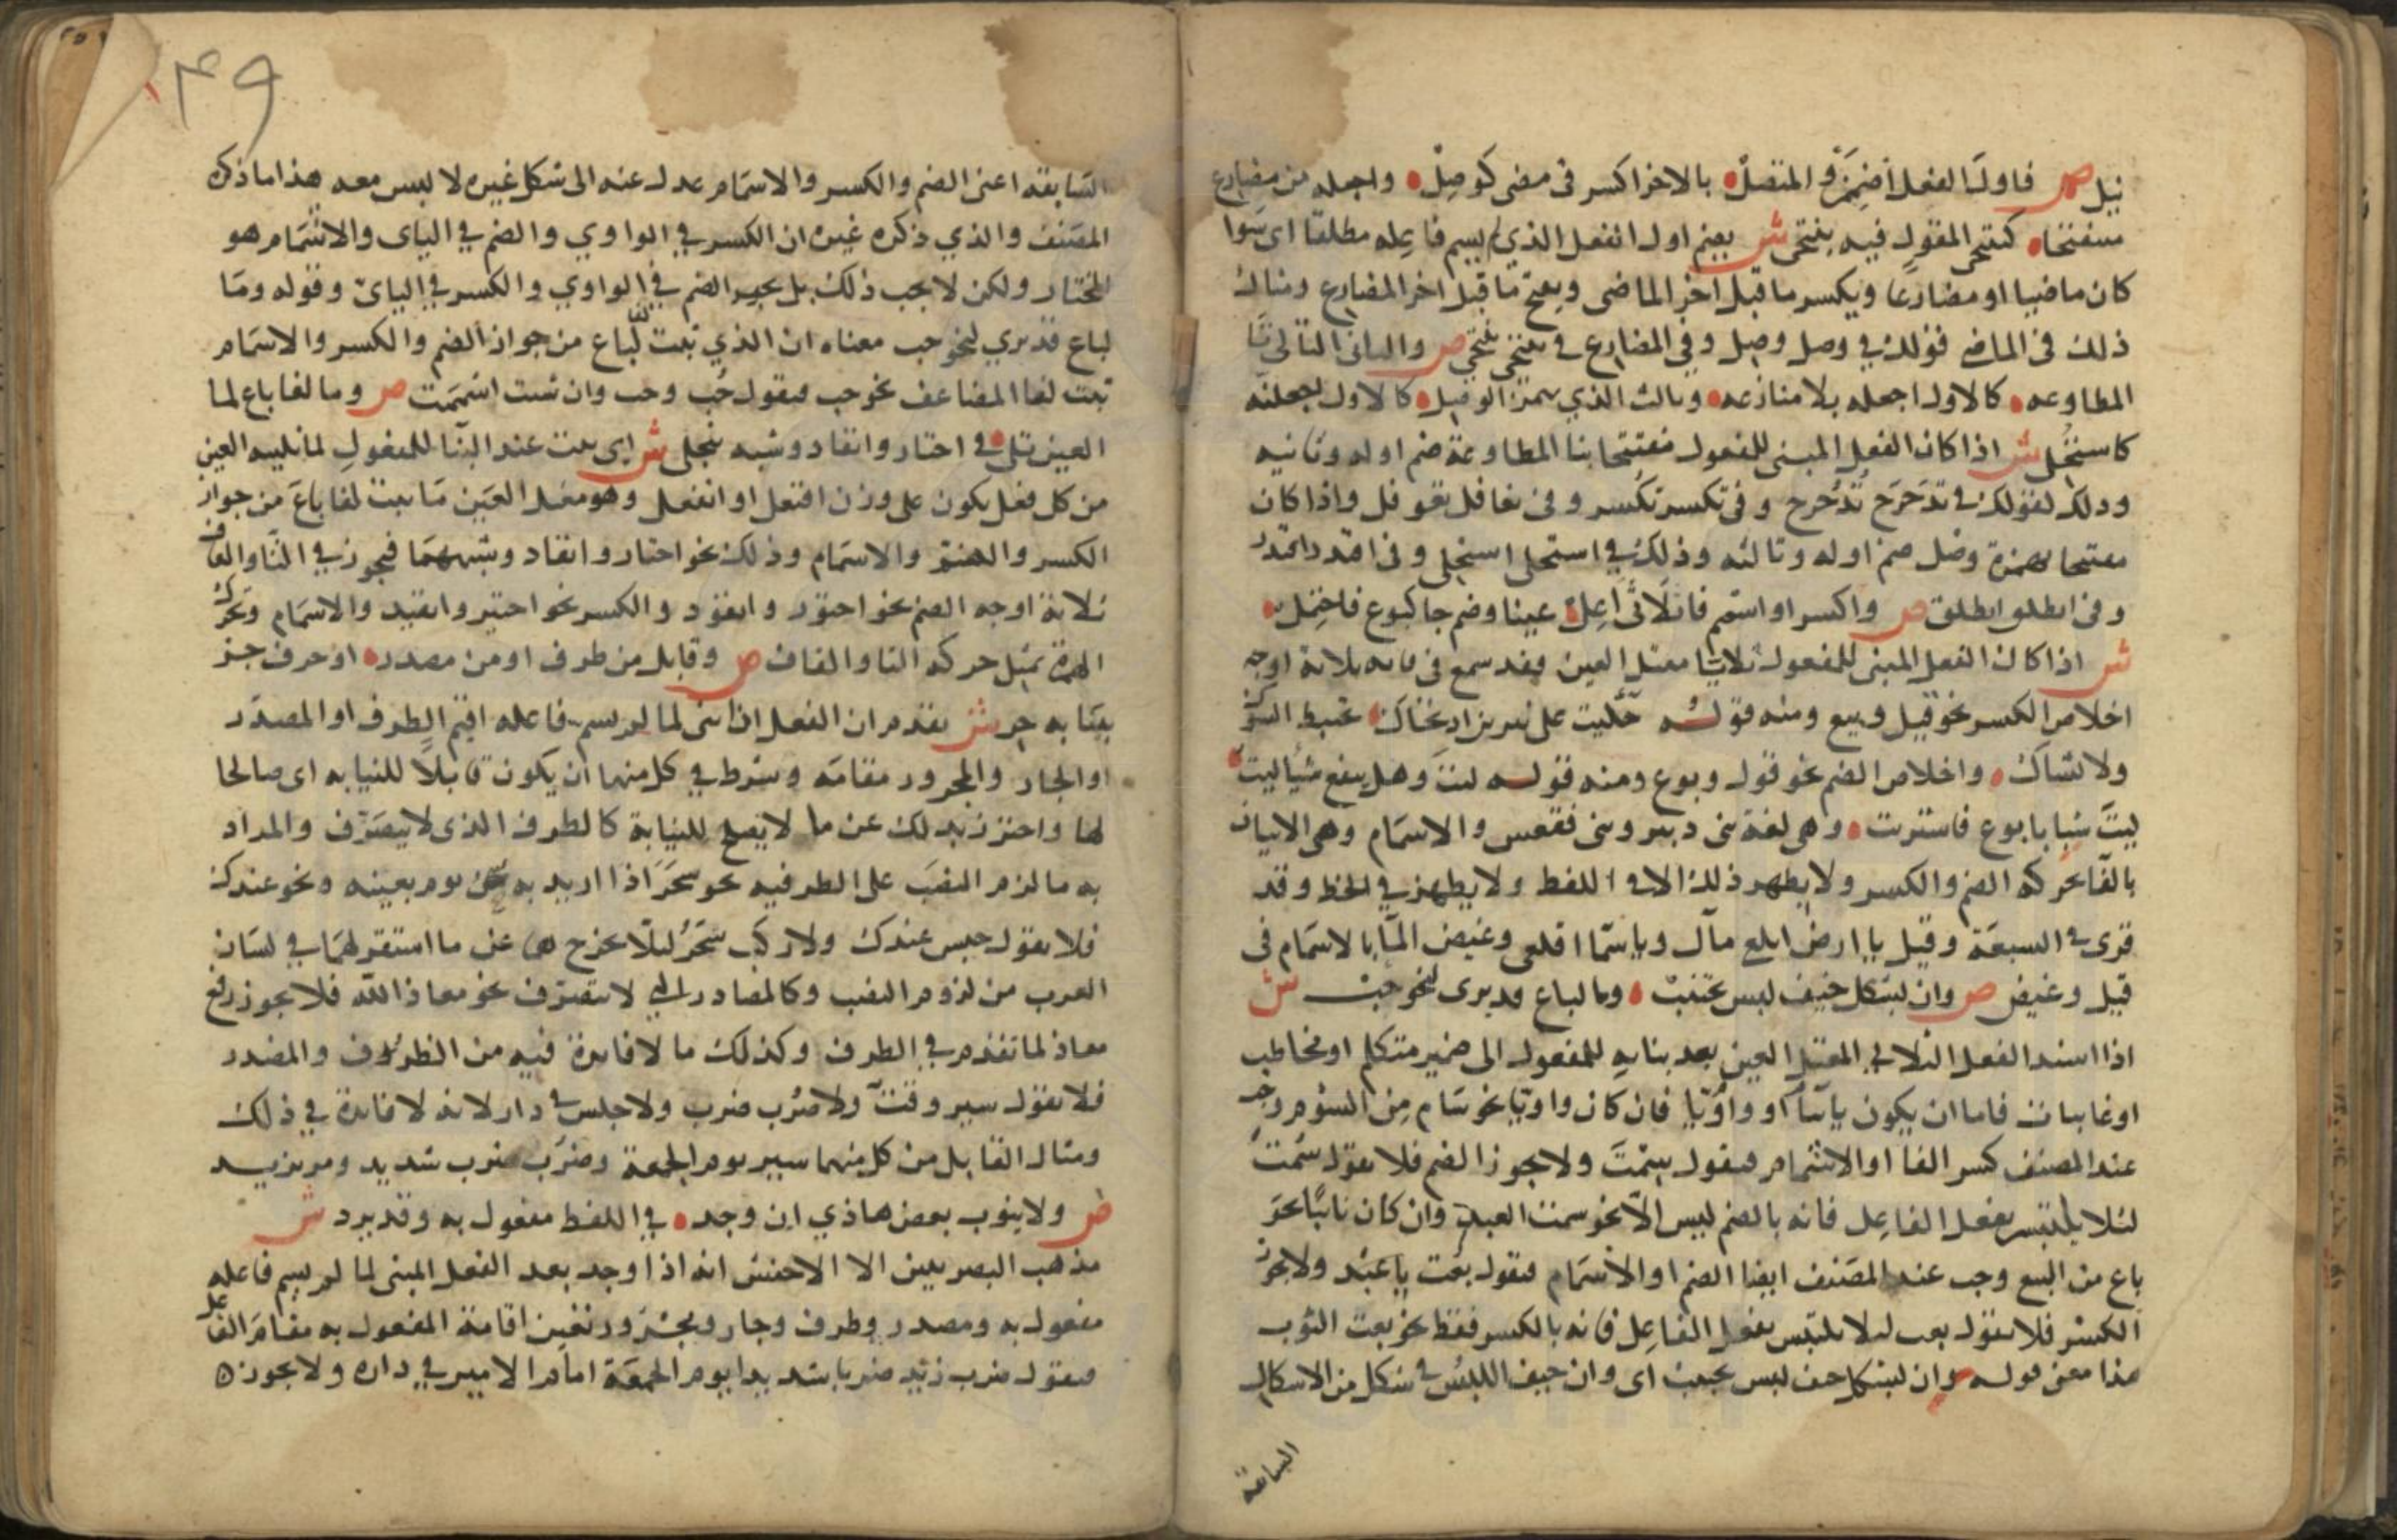 نيل ص فاول الفعل اضممن والمتصل بالاخر اكسر في مضى كوصل واجعله من مضارع
منفتحا كينتحي المقول فيه ينتحى ش يضم اول الفعل الذي لم يسم فاعله مطلقا اى سوا
كان ماضيا او مضارعا ويكسر ما قبل اخر الماضى ويفتح ما قبل اخر المضارع ومثال
ذلك في الماضي قولك في وصل وصل وفي المضارع في ينتحي ينتحى ص والثاني التالي تا
المطاوعه كالاول اجعله بلا منازعه وثالث الذي بهمز الوصل كالاول اجعلنه
كاستحلى ش اذا كان الفعل المبنى للمفعول مفتتحا بتا المطاوعة ضم اوله وثانيه
وذلك كقولك في تدحرج تدحرج وفي تكسر تكسر وفي تغافل تغوفل واذا كان
مفتتحا بهمزة وصل ضم اوله وثالثه وذلك في استحلى استحلى وفي اقتدر اقتدر
وفي انطلق انطلق ص واكسر او اشمم فا ثلاثى اعل عينا وضم جا كبوع فاحتمل
ش اذا كان الفعل المبنى للمفعول ثلاثيا معتل العين فقد سمع في فايه ثلاثة اوجه
اخلاص الكسر نحو قيل وبيع ومنه قوله حيكت على نيرين اذ تحاك تختبط الشوك
ولا تشاك واخلاص الضم نحو قول وبوع ومنه قوله ليت وهل ينفع شيا ليت
ليت شبابا بوع فاشتريت وهى لغة بني دبير وبني فقعس والاشمام وهى الاتيان
بالفا بحركة الضم والكسر ولا يظهر ذلك الا في اللفظ ولا يظهر في الخط وقد
قرى في السبعة وقيل يا ارض ابلعى ماك وياسما اقلعى وغيض الما بالاشمام في
قيل وغيض ص وان بشكل خيف لبس يجتنب وما لباع قد يرى لنحو حب ش
اذا اسند الفعل الثلاثي المعتل العين بعد بنايه للمفعول الى ضمير متكلم او مخاطب
او غايبات فاما ان يكون يائيا او واويا فان كان واويا نحو سام من السوم وجب
عند المصنف كسر الفا او الاشمام فيقول سمت ولا يجوز الضم فلا يقول سمت
لئلا يلتبس بفعل الفاعل فانه بالضم ليس الا نحو سمت العبد وان كان يائيا نحو
باع من البيع وجب عند المصنف ايضا الضم او الاشمام فيقول بعت يا عبد ولا يجوز
الكسر فلا يقول بعت ليلا يلتبس بفعل الفاعل فانه بالكسر فقط نحو بعت الثوب
هذا معنى قوله وان بشكل خيف لبس يجتنب اى وان خيف اللبس في شكل من الاشكال
السابقة
السابقه اعنى الضم والكسر والاشمام عدل عنه الى شكل غيره لا لبس معه هذا ما ذكره
المصنف والذي ذكره غيره ان الكسر في الواوي والضم في الياى والاشمام هو
المختار ولكن لا يجب ذلك بل يجوز الضم في الواوي والكسر في الياى وقوله وما
لباع قد يري لنحو حب معناه ان الذي ثبت لفا باع من جواز الضم والكسر والاشمام
ثبت لفا المضاعف نحو حب فيقول حب وحب وان شئت اشممت ص وما لفا باع لما
العين تلى في اختار وانقاد وشبه ينجلى ش اى يثبت عند البنا للمفعول لما تليه العين
من كل فعل يكون على وزن افتعل او انفعل وهو معتل العين ما يثبت لفا باع من جواز
الكسر والضم والاشمام وذلك نحو اختار وانقاد وشبههما فيجوز في التا والقاف
ثلاثة اوجه الضم نحو اختور وانقود والكسر نحو اختير وانقيد والاشمام وتحرك
الهمزة بمثل حركة التا والقاف ص وقابل من ظرف او من مصدر او حرف جر
بنيابه حر ش تقدم ان الفعل اذا بنى لما لم يسم فاعله اقيم الظرف او المصدر
او الجار والمجرور مقامه وشرط في كل منها ان يكون قابلا للنيابه اى صالحا
لها واحترز بذلك عن ما لا يصلح للنيابة كالظرف الذي لا يتصرف والمراد
به ما لزم النصب على الظرفيه نحو سحر اذا اريد به سحر يوم بعينه ونحو عندك
فلا يقول جلس عندك ولا ركب سحر ليلا يخرج هما عن ما استقر لهما في لسان
العرب من لزوم النصب وكالمصادر التي لا تتصرف نحو معاذ الله فلا يجوز رفع
معاذ لما تقدم في الظرف وكذلك ما لا فايدة فيه من الظروف والمصدر
فلا يقول سير وقت ولا ضرب ضرب ولا جلس في دار لانه لا فايدة في ذلك
ومثال القابل من كل منهما سير يوم الجمعة وضرب ضرب شديد ومر بزيد
ص ولا ينوب بعض هاذي ان وجد في اللفظ مفعول به وقد يرد ش
مذهب البصريين الا الاخفش انه اذا وجد بعد الفعل المبنى لما لم يسم فاعله
مفعول به ومصدر وظرف وجار ومجرور تعين اقامة المفعول به مقام الفاعل
فيقول ضرب زيد ضربا شديدا يوم الجمعة امام الامير في داره ولا يجوز